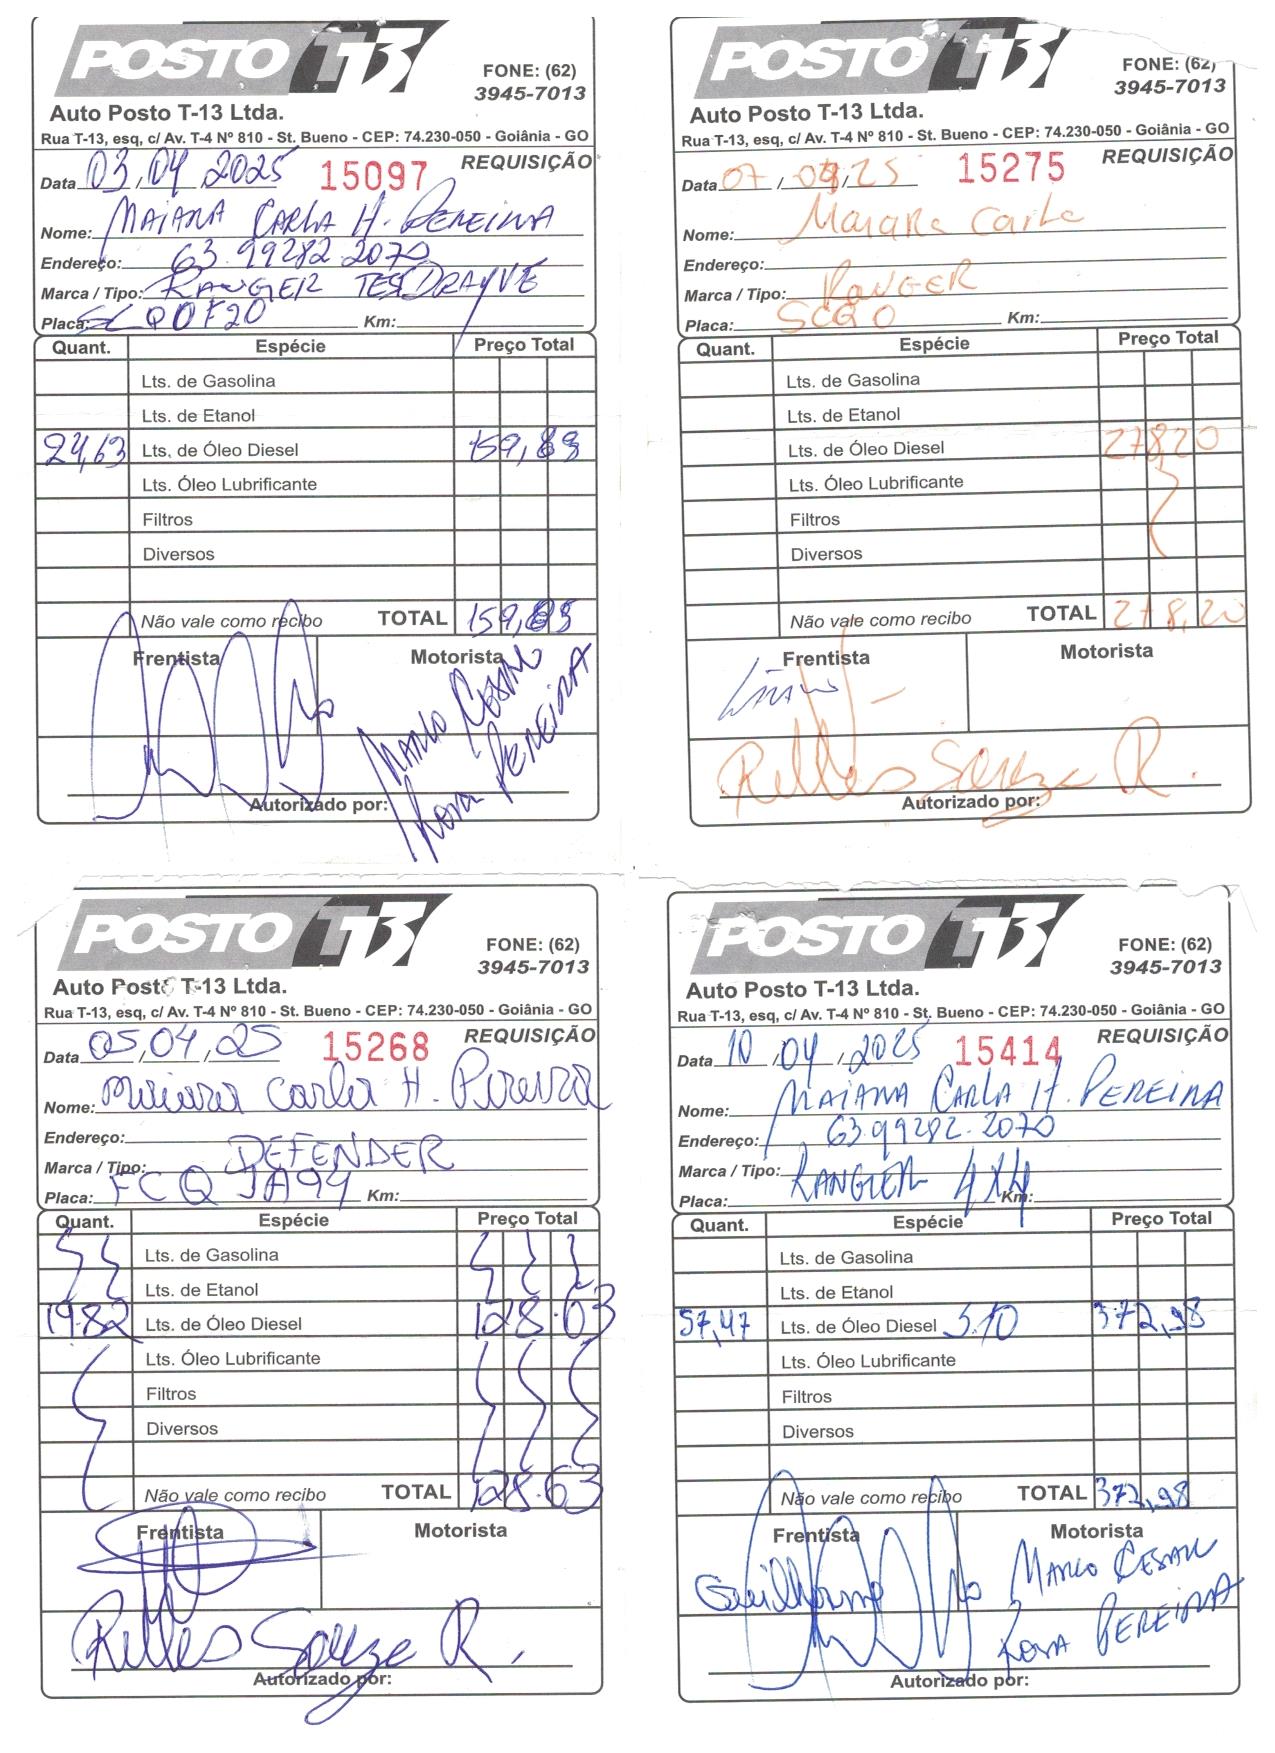 POSTO T-13
FONE: (62)
3945-7013
Auto Posto T-13 Ltda.
Rua T-13, esq, c/ Av. T-4 Nº 810 - St. Bueno - CEP: 74.230-050 - Goiânia - GO
REQUISIÇÃO
Data 03/04/2025 15097
Nome: MAIARA CARLA H. PEREIRA
Endereço: 63.99282.2070
Marca / Tipo: RANGER TESDRAYVE
Placa: SCQ0F20 Km:
Quant. Espécie Preço Total
Lts. de Gasolina
Lts. de Etanol
24,63 Lts. de Óleo Diesel 159,83
Lts. Óleo Lubrificante
Filtros
Diversos
Não vale como recibo TOTAL 159,83
Frentista Motorista
MARCO CESAR
ROSA PEREIRA
Autorizado por:
POSTO T-13
FONE: (62)
3945-7013
Auto Posto T-13 Ltda.
Rua T-13, esq, c/ Av. T-4 Nº 810 - St. Bueno - CEP: 74.230-050 - Goiânia - GO
REQUISIÇÃO
Data 07/04/25 15275
Nome: Maiara Carla
Endereço:
Marca / Tipo: RANGER
Placa: SCQ0 Km:
Quant. Espécie Preço Total
Lts. de Gasolina
Lts. de Etanol
Lts. de Óleo Diesel 278,20
Lts. Óleo Lubrificante
Filtros
Diversos
Não vale como recibo TOTAL 278,20
Frentista Motorista
Relles Souza R.
Autorizado por:
POSTO T-13
FONE: (62)
3945-7013
Auto Posto T-13 Ltda.
Rua T-13, esq, c/ Av. T-4 Nº 810 - St. Bueno - CEP: 74.230-050 - Goiânia - GO
REQUISIÇÃO
Data 05/04/25 15268
Nome: Maiara Carla H. Pereira
Endereço:
Marca / Tipo: DEFENDER
Placa: FCQ JA94 Km:
Quant. Espécie Preço Total
Lts. de Gasolina
Lts. de Etanol
19.82 Lts. de Óleo Diesel 128.63
Lts. Óleo Lubrificante
Filtros
Diversos
Não vale como recibo TOTAL 128.63
Frentista Motorista
Relles Souza R.
Autorizado por:
POSTO T-13
FONE: (62)
3945-7013
Auto Posto T-13 Ltda.
Rua T-13, esq, c/ Av. T-4 Nº 810 - St. Bueno - CEP: 74.230-050 - Goiânia - GO
REQUISIÇÃO
Data 10/04/2025 15414
Nome: MAIARA CARLA H. PEREIRA
Endereço: 63.99282.2070
Marca / Tipo: RANGER 4X4
Placa: Km:
Quant. Espécie Preço Total
Lts. de Gasolina
Lts. de Etanol
57,47 Lts. de Óleo Diesel S.10 372,98
Lts. Óleo Lubrificante
Filtros
Diversos
Não vale como recibo TOTAL 372,98
Frentista Motorista
Guilherme MARCO CESAR
ROSA PEREIRA
Autorizado por: